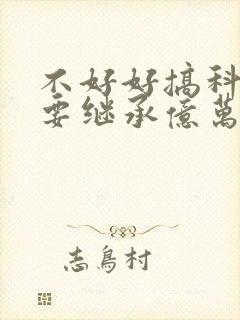 不好好搞科
要继承億萬
志鳥村